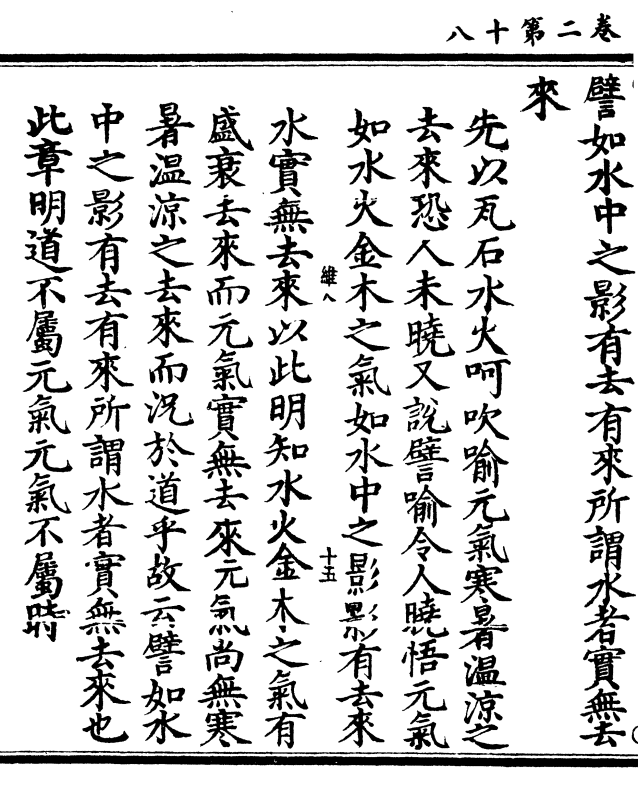 卷二第十八
譬如水中之影有去有來所謂水者實無去
來
先以瓦石水火呵吹喻元氣寒暑溫涼之
去來恐人未曉又說譬喻令人曉悟元氣
如水火金木之氣如水中之影影有去來
維八
十五
水實無去來以此明知水火金木之氣有
盛衰去來而元氣實無去來元氣尚無寒
暑溫涼之去來而況於道乎故云譬如水
中之影有去有來所謂水者實無去來也
此章明道不屬元氣元氣不屬時